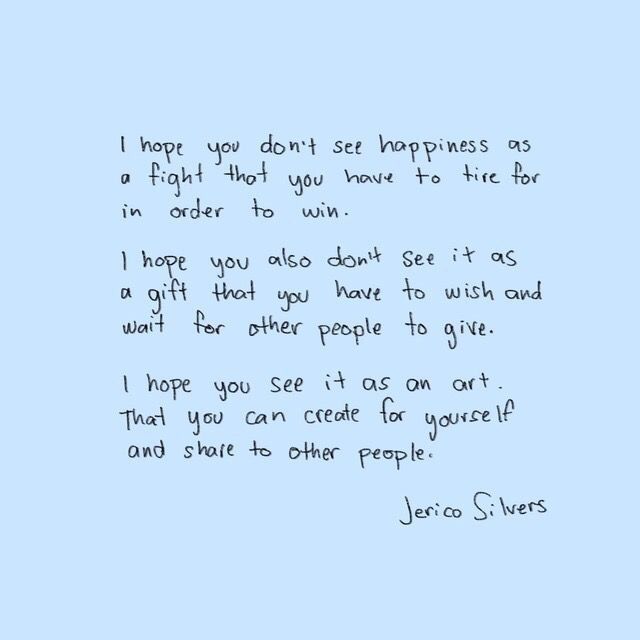 I hope you don't see happiness as
a fight that you have to tire for
in order to win.
I hope you also don't see it as
a gift that you have to wish and
wait for other people to give.
I hope you see it as an art.
That you can create for yourself
and share to other people.
Jerico Silvers